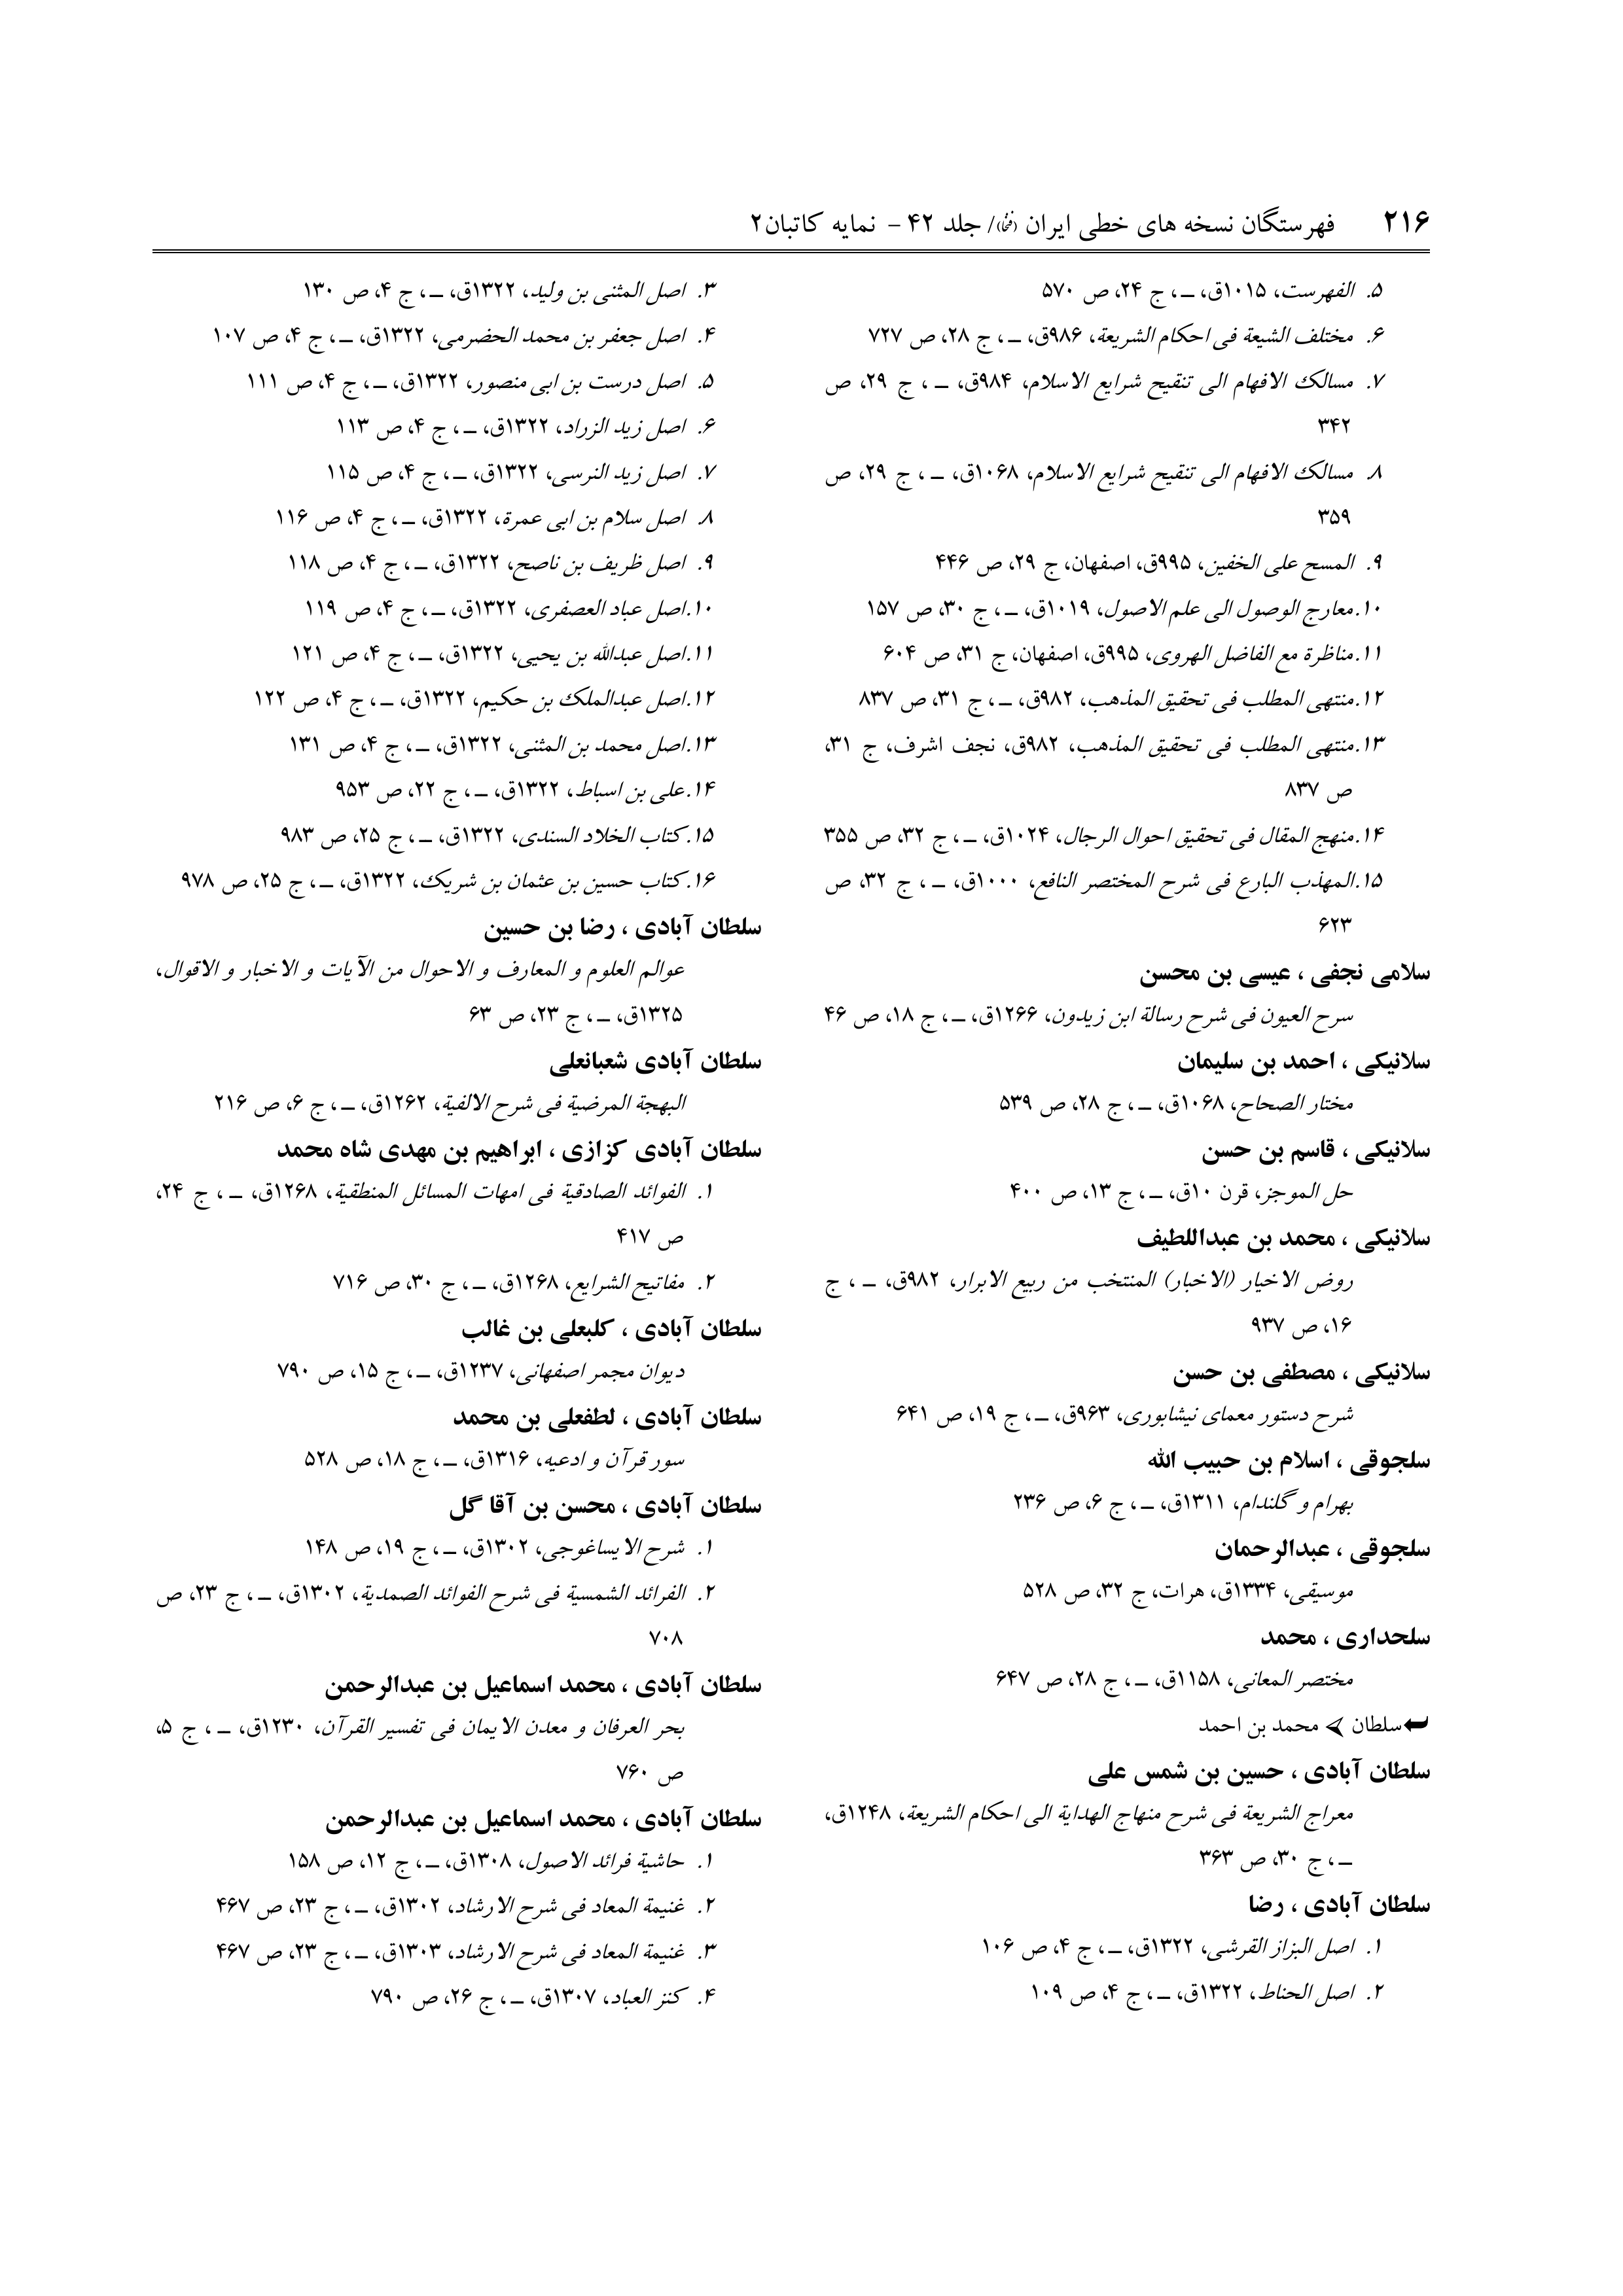 ۲۱۶ فهرستگان نسخه های خطی ایران (فنخا)/ جلد ۴۲ - نمایه کاتبان۲
۵. الفهرست، ۱۰۱۵ق، ــ، ج ۲۴، ص ۵۷۰
۶. مختلف الشیعة فی احکام الشریعة، ۹۸۶ق، ــ، ج ۲۸، ص ۷۲۷
۷. مسالک الافهام الی تنقیح شرایع الاسلام، ۹۸۴ق، ــ، ج ۲۹، ص
۳۴۲
۸. مسالک الافهام الی تنقیح شرایع الاسلام، ۱۰۶۸ق، ــ، ج ۲۹، ص
۳۵۹
۹. المسح علی الخفین، ۹۹۵ق، اصفهان، ج ۲۹، ص ۴۴۶
۱۰. معارج الوصول الی علم الاصول، ۱۰۱۹ق، ــ، ج ۳۰، ص ۱۵۷
۱۱. مناظرة مع الفاضل الهروی، ۹۹۵ق، اصفهان، ج ۳۱، ص ۶۰۴
۱۲. منتهی المطلب فی تحقیق المذهب، ۹۸۲ق، ــ، ج ۳۱، ص ۸۳۷
۱۳. منتهی المطلب فی تحقیق المذهب، ۹۸۲ق، نجف اشرف، ج ۳۱،
ص ۸۳۷
۱۴. منهج المقال فی تحقیق احوال الرجال، ۱۰۲۴ق، ــ، ج ۳۲، ص ۳۵۵
۱۵. المهذب البارع فی شرح المختصر النافع، ۱۰۰۰ق، ــ، ج ۳۲، ص
۶۲۳
سلامی نجفی ، عیسی بن محسن
سرح العیون فی شرح رسالة ابن زیدون، ۱۲۶۶ق، ــ، ج ۱۸، ص ۴۶
سلانیکی ، احمد بن سلیمان
مختار الصحاح، ۱۰۶۸ق، ــ، ج ۲۸، ص ۵۳۹
سلانیکی ، قاسم بن حسن
حل الموجز، قرن ۱۰ق، ــ، ج ۱۳، ص ۴۰۰
سلانیکی ، محمد بن عبداللطیف
روض الاخیار (الاخبار) المنتخب من ربیع الابرار، ۹۸۲ق، ــ، ج
۱۶، ص ۹۳۷
سلانیکی ، مصطفی بن حسن
شرح دستور معمای نیشابوری، ۹۶۳ق، ــ، ج ۱۹، ص ۶۴۱
سلجوقی ، اسلام بن حبیب الله
بهرام و گلندام، ۱۳۱۱ق، ــ، ج ۶، ص ۲۳۶
سلجوقی ، عبدالرحمان
موسیقی، ۱۳۳۴ق، هرات، ج ۳۲، ص ۵۲۸
سلحداری ، محمد
مختصر المعانی، ۱۱۵۸ق، ــ، ج ۲۸، ص ۶۴۷
سلطان ⮜ محمد بن احمد
سلطان آبادی ، حسین بن شمس علی
معراج الشریعة فی شرح منهاج الهدایة الی احکام الشریعة، ۱۲۴۸ق،
ــ، ج ۳۰، ص ۳۶۳
سلطان آبادی ، رضا
۱. اصل البزاز القرشی، ۱۳۲۲ق، ــ، ج ۴، ص ۱۰۶
۲. اصل الحناط، ۱۳۲۲ق، ــ، ج ۴، ص ۱۰۹
۳. اصل المثنی بن ولید، ۱۳۲۲ق، ــ، ج ۴، ص ۱۳۰
۴. اصل جعفر بن محمد الحضرمی، ۱۳۲۲ق، ــ، ج ۴، ص ۱۰۷
۵. اصل درست بن ابی منصور، ۱۳۲۲ق، ــ، ج ۴، ص ۱۱۱
۶. اصل زید الزراد، ۱۳۲۲ق، ــ، ج ۴، ص ۱۱۳
۷. اصل زید النرسی، ۱۳۲۲ق، ــ، ج ۴، ص ۱۱۵
۸. اصل سلام بن ابی عمرة، ۱۳۲۲ق، ــ، ج ۴، ص ۱۱۶
۹. اصل ظریف بن ناصح، ۱۳۲۲ق، ــ، ج ۴، ص ۱۱۸
۱۰. اصل عباد العصفری، ۱۳۲۲ق، ــ، ج ۴، ص ۱۱۹
۱۱. اصل عبدالله بن یحیی، ۱۳۲۲ق، ــ، ج ۴، ص ۱۲۱
۱۲. اصل عبدالملک بن حکیم، ۱۳۲۲ق، ــ، ج ۴، ص ۱۲۲
۱۳. اصل محمد بن المثنی، ۱۳۲۲ق، ــ، ج ۴، ص ۱۳۱
۱۴. علی بن اسباط، ۱۳۲۲ق، ــ، ج ۲۲، ص ۹۵۳
۱۵. کتاب الخلاد السندی، ۱۳۲۲ق، ــ، ج ۲۵، ص ۹۸۳
۱۶. کتاب حسین بن عثمان بن شریک، ۱۳۲۲ق، ــ، ج ۲۵، ص ۹۷۸
سلطان آبادی ، رضا بن حسین
عوالم العلوم و المعارف و الاحوال من الآیات و الاخبار و الاقوال،
۱۳۲۵ق، ــ، ج ۲۳، ص ۶۳
سلطان آبادی شعبانعلی
البهجة المرضیة فی شرح الالفیة، ۱۲۶۲ق، ــ، ج ۶، ص ۲۱۶
سلطان آبادی کزازی ، ابراهیم بن مهدی شاه محمد
۱. الفوائد الصادقیة فی امهات المسائل المنطقیة، ۱۲۶۸ق، ــ، ج ۲۴،
ص ۴۱۷
۲. مفاتیح الشرایع، ۱۲۶۸ق، ــ، ج ۳۰، ص ۷۱۶
سلطان آبادی ، کلبعلی بن غالب
دیوان مجمر اصفهانی، ۱۲۳۷ق، ــ، ج ۱۵، ص ۷۹۰
سلطان آبادی ، لطفعلی بن محمد
سور قرآن و ادعیه، ۱۳۱۶ق، ــ، ج ۱۸، ص ۵۲۸
سلطان آبادی ، محسن بن آقا گل
۱. شرح الایساغوجی، ۱۳۰۲ق، ــ، ج ۱۹، ص ۱۴۸
۲. الفرائد الشمسیة فی شرح الفوائد الصمدیة، ۱۳۰۲ق، ــ، ج ۲۳، ص
۷۰۸
سلطان آبادی ، محمد اسماعیل بن عبدالرحمن
بحر العرفان و معدن الایمان فی تفسیر القرآن، ۱۲۳۰ق، ــ، ج ۵،
ص ۷۶۰
سلطان آبادی ، محمد اسماعیل بن عبدالرحمن
۱. حاشیة فرائد الاصول، ۱۳۰۸ق، ــ، ج ۱۲، ص ۱۵۸
۲. غنیمة المعاد فی شرح الارشاد، ۱۳۰۲ق، ــ، ج ۲۳، ص ۴۶۷
۳. غنیمة المعاد فی شرح الارشاد، ۱۳۰۳ق، ــ، ج ۲۳، ص ۴۶۷
۴. کنز العباد، ۱۳۰۷ق، ــ، ج ۲۶، ص ۷۹۰